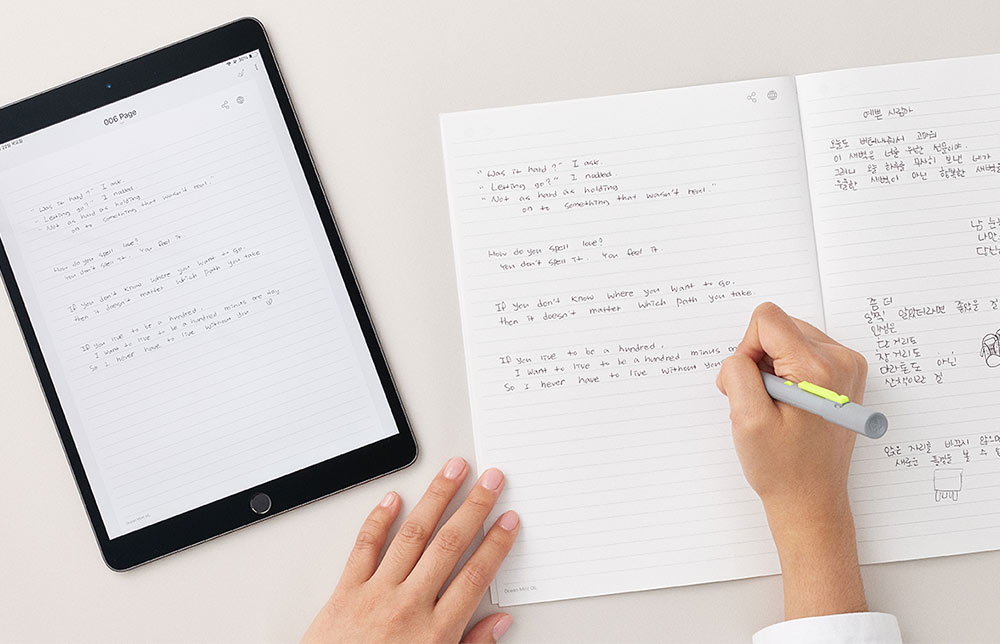 006 Page
"Was it hard?" I ask.
"Letting go?" I nodded.
"Not as hard as holding
on to something that wasn't real."
How do you spell love?
You don't spell it. You feel it.
If you don't know where you want to go.
then it doesn't matter which path you take
If you live to be a hundred.
I want to live to be a hundred minus one day
So I never have to live without you
"Was it hard?" I ask.
"Letting go?" I nodded.
"Not as hard as holding
on to something that wasn't real."
How do you spell love?
You don't spell it. You feel it.
If you don't know where you want to go.
then it doesn't matter which path you take.
If you live to be a hundred.
I want to live to be a hundred minus
So I never have to live without you
예쁜 사람아
오늘도 고마워
이 새벽은 너를 위한
그러니 오늘 하루를 무사히 보낸 네가
우울한 새벽이 아닌 행복한 새벽을
남
나만
당신
좀 더
일찍 알았더라면 좋았을 걸
인생은
단거리도
장거리도
마라톤도 아닌
산책이란 걸
앉은 자리를 바꾸지 않으면
새로운 풍경을 볼 수